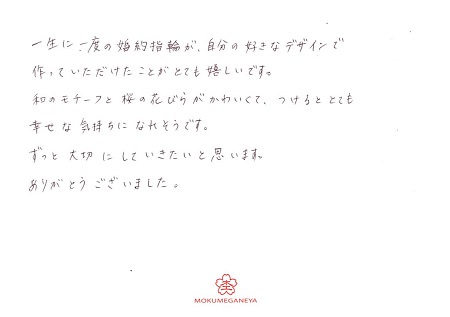 一生に一度の婚約指輪が、自分の好きなデザインで
作っていただけたことがとても嬉しいです。
和のモチーフと桜の花びらがかわいくて、つけるととても
幸せな気持ちになれそうです。
ずっと大切にしていきたいと思います。
ありがとうございました。
MOKUMEGANEYA